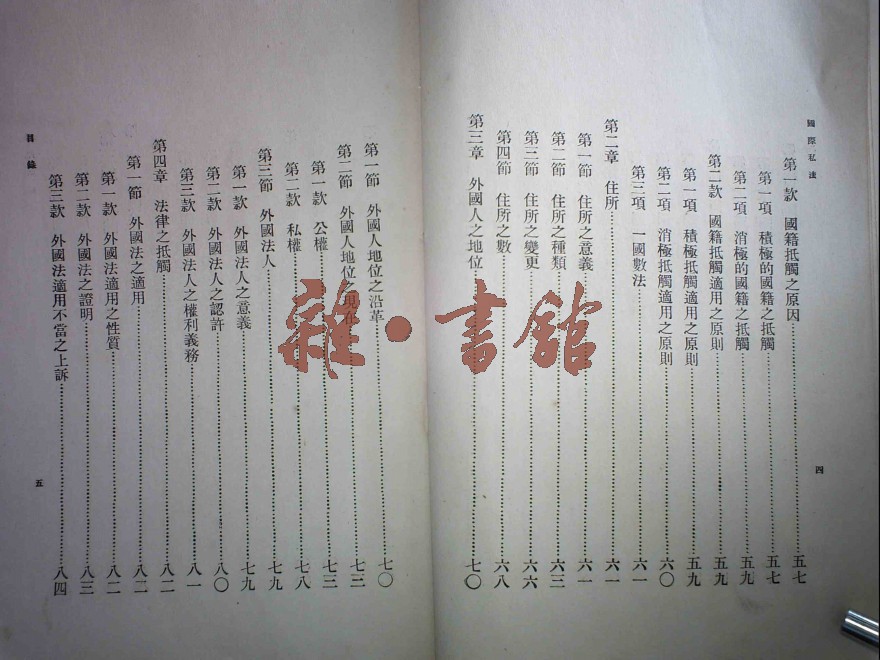 國際私法
第一款 國籍抵觸之原因 五七
第一項 積極的國籍之抵觸 五七
第二項 消極的國籍之抵觸 五九
第二款 國籍抵觸適用之原則 五九
第一項 積極抵觸適用之原則 五九
第二項 消極抵觸適用之原則 六〇
第三項 一國數法 六一
第二章 住所 六一
第一節 住所之意義 六一
第二節 住所之種類 六三
第三節 住所之變更 六六
第四節 住所之數 六八
第三章 外國人之地位 七〇
四
第一節 外國人地位之沿革 七〇
第二節 外國人地位之現在 七三
第一款 公權 七三
第二款 私權 七八
第三節 外國法人 七九
第一款 外國法人之意義 七九
第二款 外國法人之認許 八〇
第三款 外國法人之權利義務 八一
第四章 法律之抵觸 八二
第一節 外國法之適用 八二
第一款 外國法適用之性質 八二
第二款 外國法之證明 八三
第三款 外國法適用不當之上訴 八四
目錄
五
雜・書館